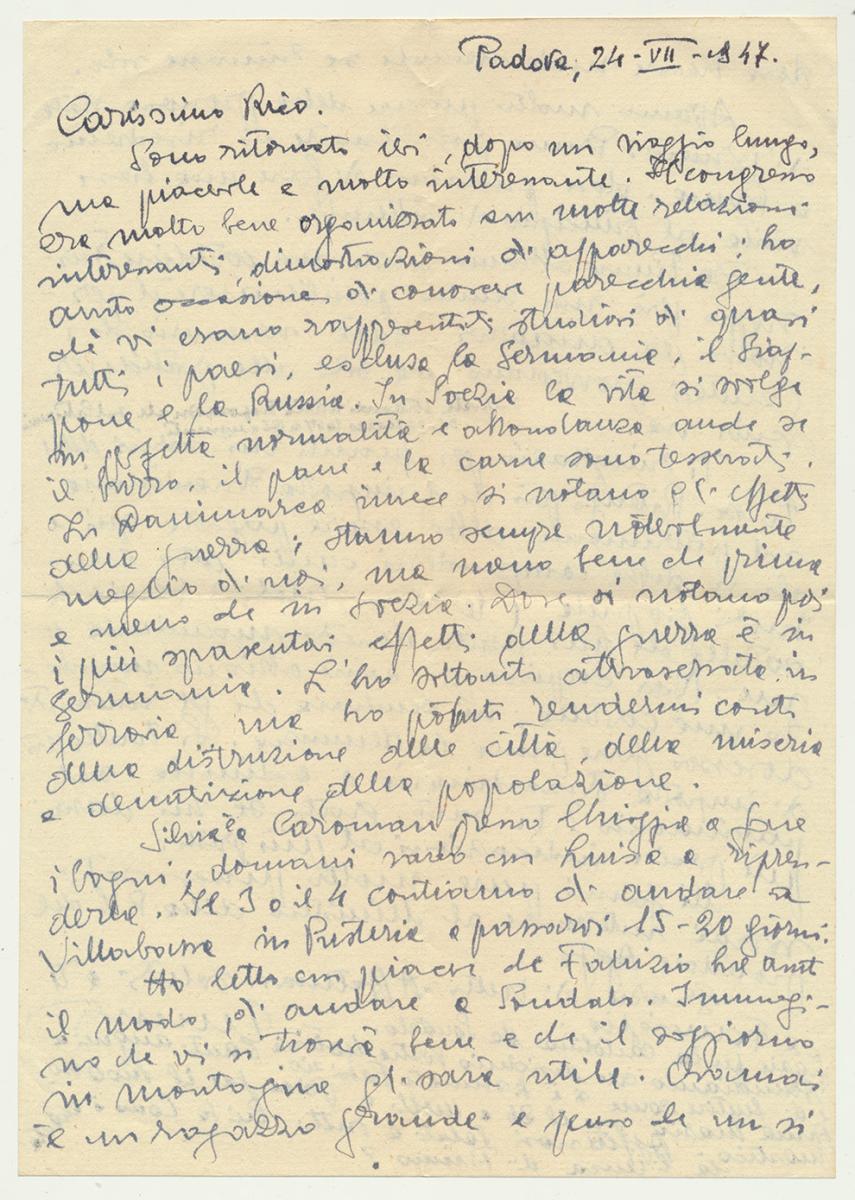 Padova, 24-VII-1947.
Carissimo Rico.
Sono ritornato ieri, dopo un viaggio lungo,
ma piacevole e molto interessante. Il congresso
era molto bene organizzato con molte relazioni
interessanti, dimostrazioni di apparecchi; ho
avuto occasione di conoscere parecchia gente,
chè vi erano rappresentati studiosi di quasi
tutti i paesi, esclusa la Germania, il Giap-
pone e la Russia. In Svezia la vita si svolge
in perfetta normalità e abbondanza anche se
il burro, il pane e la carne sono tesserati.
In Danimarca invece si notano gli effetti
della guerra; stanno sempre notevolmente
meglio di noi, ma meno bene che prima
e meno che in Svezia. Dove si notano poi
i più spaventosi effetti della guerra è in
Germania. L'ho soltanto attraversata in
ferrovia ma ho potuto rendermi conto
della distruzione delle città, della miseria
e denutrizione della popolazione.
Silvia è a Caroman presso Chioggia a fare
i bagni; domani vado con Luisa a ripren-
derla. Il 3 o il 4 contiamo di andare a
Villabassa in Pusteria e passarvi 15-20 giorni.
Ho letto con piacere che Fabrizio ha avuto
il modo di andare a Sondalo. Immagi-
no che vi si troverà bene e che il soggiorno
in montagna gli sarà utile. Oramai
è un ragazzo grande e penso che un si